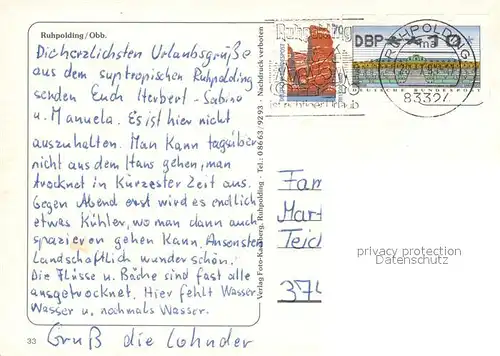 Ruhpolding/Obb.
Die herzlichsten Urlaubsgrüße
aus dem suptropischen Ruhpolding
senden Euch Herbert - Sabine
u. Manuela. Es ist hier nicht
auszuhalten. Man kann tagsüber
nicht aus dem Haus gehen, man
trocknet in Kürzester Zeit aus.
Gegen Abend erst wird es endlich
etwas Kühler, wo man dann auch
spazieren gehen Kann. Ansonsten
Landschaftlich wunderschön.
Die Flüsse u. Bäche sind fast alle
ausgetrocknet. Hier fehlt Wasser
Wasser u. nochmals Wasser.
Gruß die Lohnder
33
Verlag Foto-Kamberg, Ruhpolding - Tel.: 08663/9293 - Nachdruck verboten
DBP
RUHPOLDING
83324
DEUTSCHE BUNDESPOST
Fam
Mar
Teic
374
privacy protection
Datenschutz